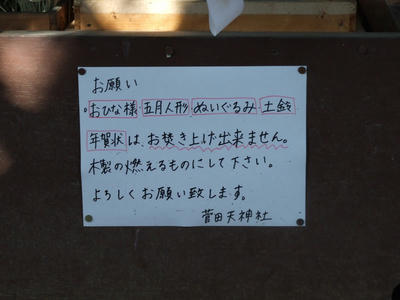 お願い
。おひな様 五月人形 ぬいぐるみ 土鈴
年賀状は、お焚き上げ出来ません。
木製の燃えるものにして下さい。
よろしくお願い致します。
菅田天神社